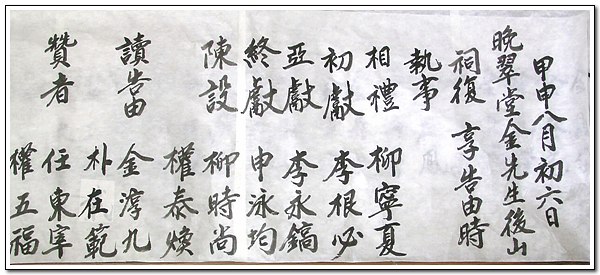 甲申八月初六日
晚翠堂金先生後山
祠復 享告由時
執事
相禮 柳寧夏
初獻 李根必
亞獻 李永鎬
終獻 申泳均
陳設 柳時尚
權泰煥
讀告由 金淳九
朴在範
贊者 任東宰
權五福